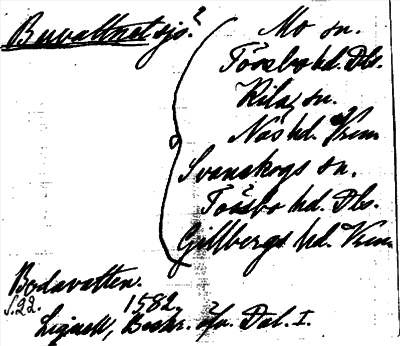 Buvattnet sjö?
Mo sn.
Tössbo hd. Dls.
Kila sn.
Näs hd. Vrm.
Svanskogs sn.
Tössbo hd. Dls.
Gillbergs hd. Vrm.
Bodavatten.
s. 22. 1582.
Lignell, Beskr. öfv. Dal. I.